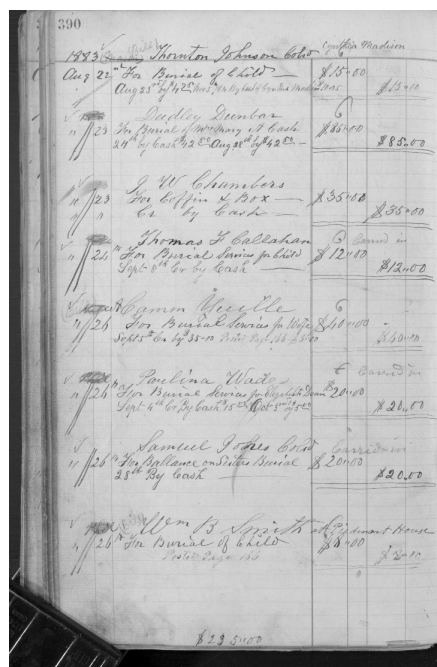 390
1883 Thornton Johnson Cold Cynthia Madison
Aug 22nd For Burial of Child — $15.00
Aug 25th by $4.25 $15.00
Dudley Dunbar
" 23 For Burial of Mary A Cash $85.00
24th by Cash $42.00 Aug 28th by $42.00 — $85.00
J W Chambers
" 23 For Coffin & Box — $35.00
" " Cr by Cash — $35.00
Thomas F Callahan Carrid in
" 24th For Burial Services for Child $12.00
Sept 8th Cr by Cash — $12.00
Camm Yuille
" 26 For Burial Services for Wife $40.00
Sept 5th Cr by 35.00 Page 166 $5.00 $40.00
Paulina Wade Carrid in
" 26th For Burial Services for Elizabeth $20.00
Sept 4th Cr By Cash 15.00 Oct 5th by 5.00 $20.00
Samuel Jones Cold Carrid in
" 26th For Ballance on Sisters Burial $20.00
28th By Cash — $20.00
Wm B Smith Piedmont House
" 26th For Burial of Child $8.00
Posted Page 166
$235.00